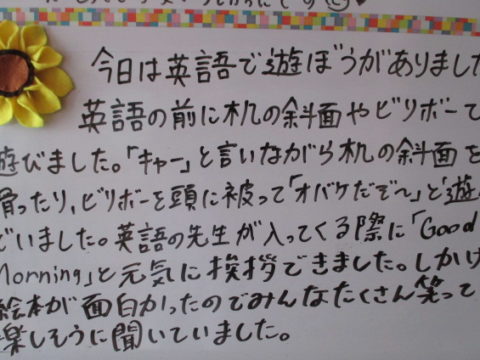 今日は英語で遊ぼうがありました
英語の前に机の斜面やビリボーで
遊びました。「キャー」と言いながら机の斜面を
滑ったり、ビリボーを頭に被って「オバケだぞ〜」と遊
でいました。英語の先生が入ってくる際に「Good
Morning」と元気に挨拶できました。しかけ
絵本が面白かったのでみんなたくさん笑って
楽しそうに聞いていました。